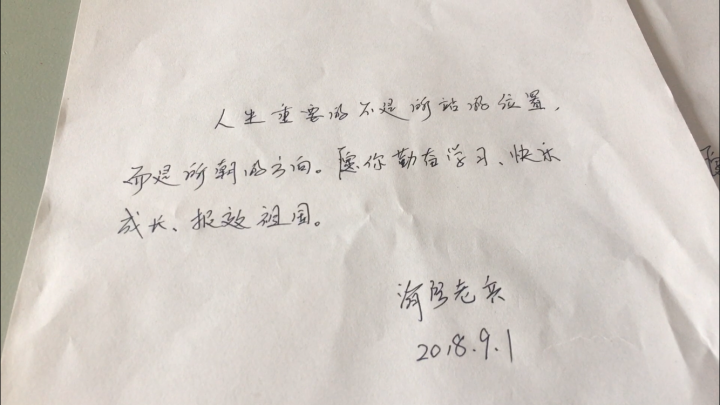 人生重要的不是所站的位置，
而是所朝的方向。愿你勤奋学习、快乐
成长、报效祖国。
老兵
2018.9.1